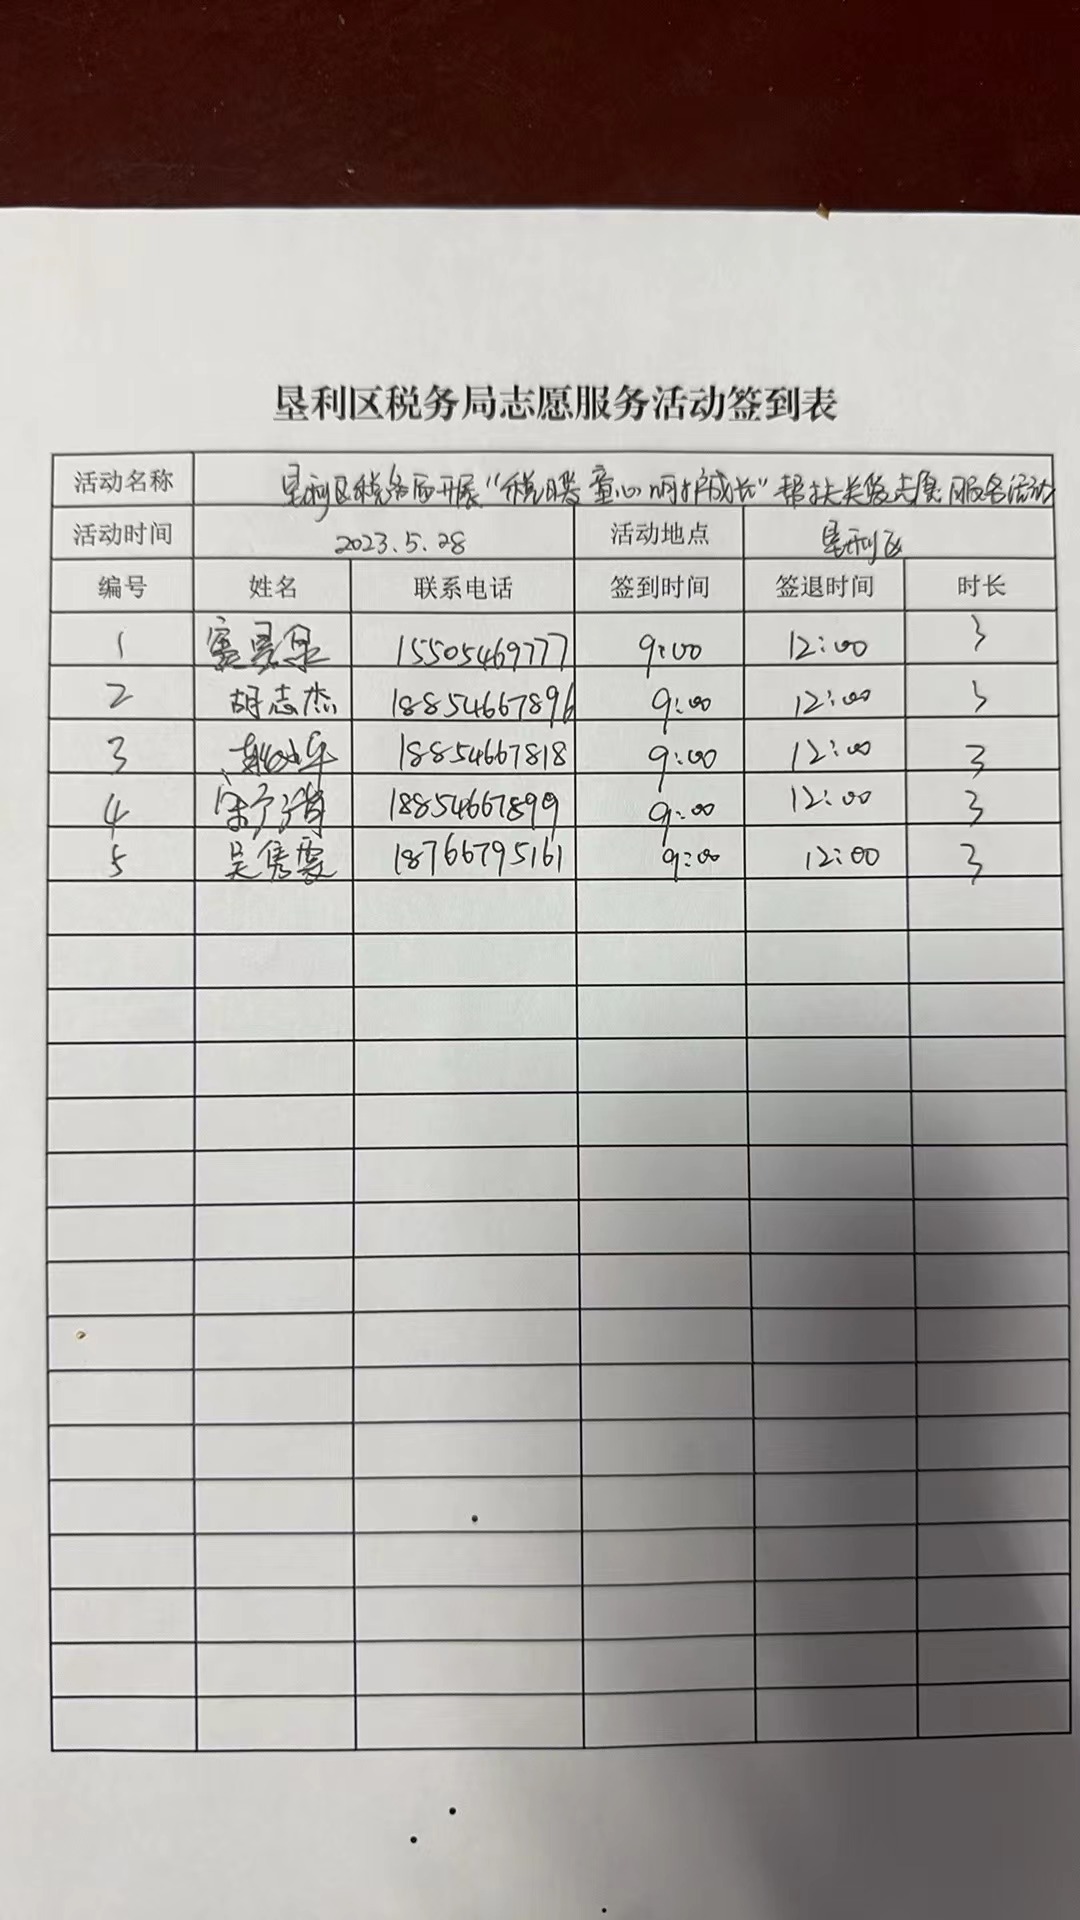 垦利区税务局志愿服务活动签到表
活动名称 垦利区税务局开展“税月暖童心 呵护成长”帮扶关爱志愿服务活动
活动时间 2023.5.28 活动地点 垦利区
编号 姓名 联系电话 签到时间 签退时间 时长
1 15505469777 9:00 12:00 3
2 胡志杰 18854667896 9:00 12:00 3
3 18854667818 9:00 12:00 3
4 18854667899 9:00 12:00 3
5 吴隽雯 18766795161 9:00 12:00 3